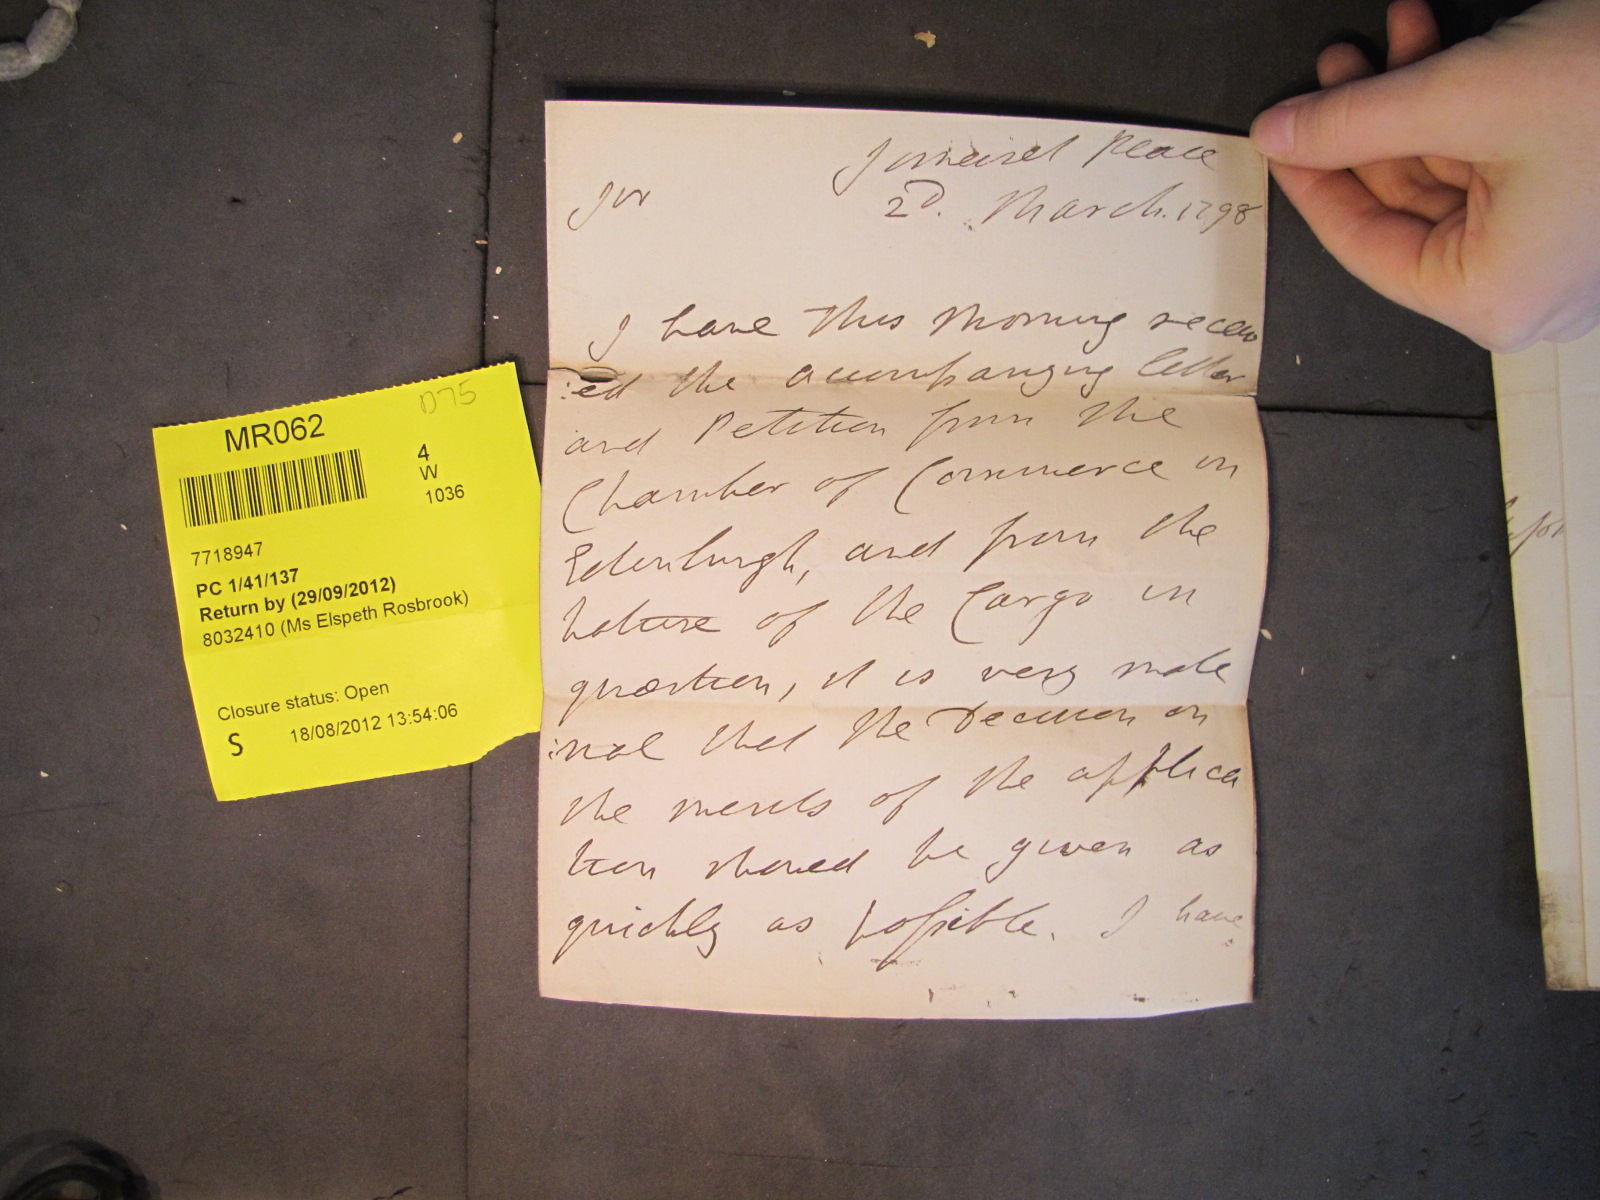 Somerset Place
Sir
2D. March. 1798
I have this Morning receiv
:ed the accompanying letter
and Petition from the
Chamber of Commerce in
Edenburgh, and from the
Nature of the Cargo in
question, it is very mate
:rial that the Decision on
the merits of the applica
tion should be given as
quickly as possible. I have
D75
MR062
4
W
1036
7718947
PC 1/41/137
Return by (29/09/2012)
8032410 (Ms Elspeth Rosbrook)
Closure status: Open
S 18/08/2012 13:54:06